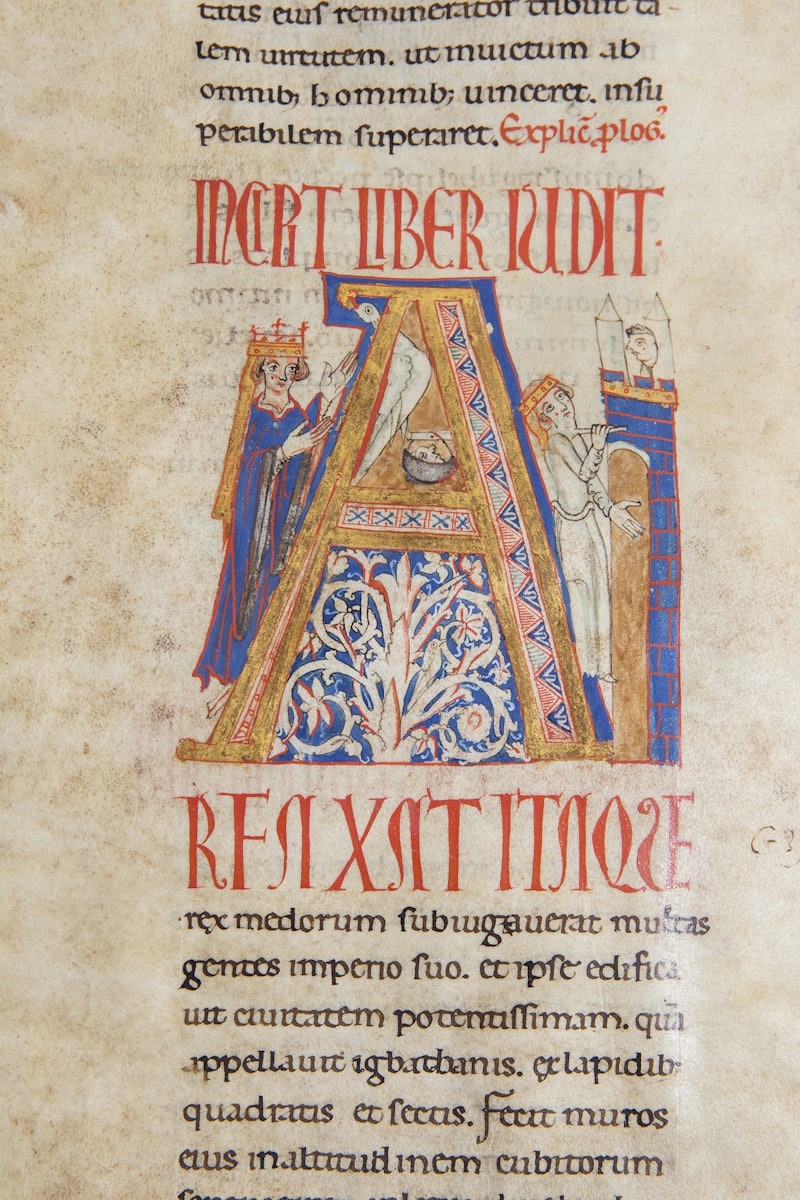 titis eius remunerator tribuit ta-
lem uirtutem. ut inuictum ab
omnib; hominib; uinceret. insu
perabilem superaret. Explic̄ p̱log̅.
INCIPIT LIBER IUDIT.
A
RFAXAT ITAQUE
rex medorum subiugauerat multas
gentes imperio suo. et ipse edifica
uit ciuitatem potentissimam. quā
appellauit igbathanis. ex lapidib;
quadratis et sectis. Fecit muros
eius in altitudinem cubitorum